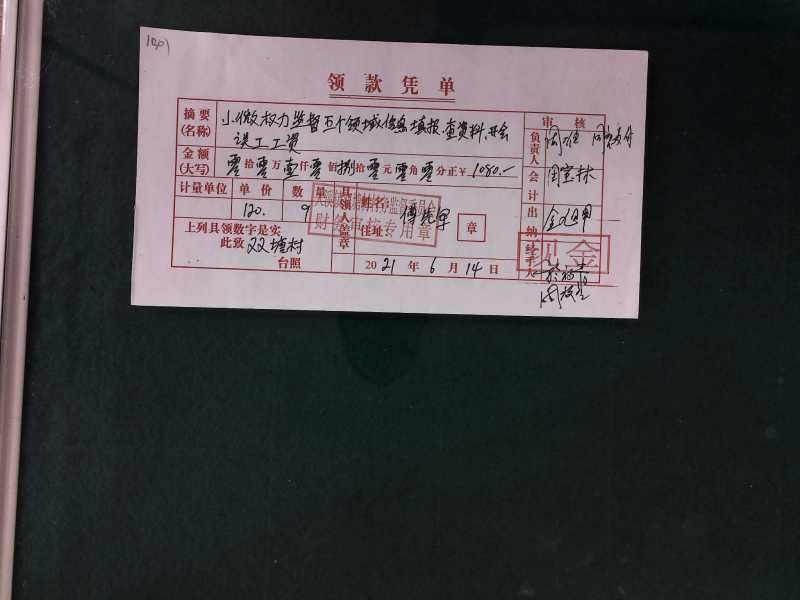 领款凭单
摘要(名称) 小微权力监督五个领域信息填报、查资料、开会
误工工资
金额(大写) 零拾零万壹仟零佰捌拾零元零角零分正¥1080.-
计量单位 单价 数量 具领人盖章 姓名: 傅先军
120. 9 住址 章
财务审核专用章
上列具领数字是实
此致 双塘村
台照
2021年6月14日
审核
负责人 同意支付
会计 周宝林
出纳
经手人
金